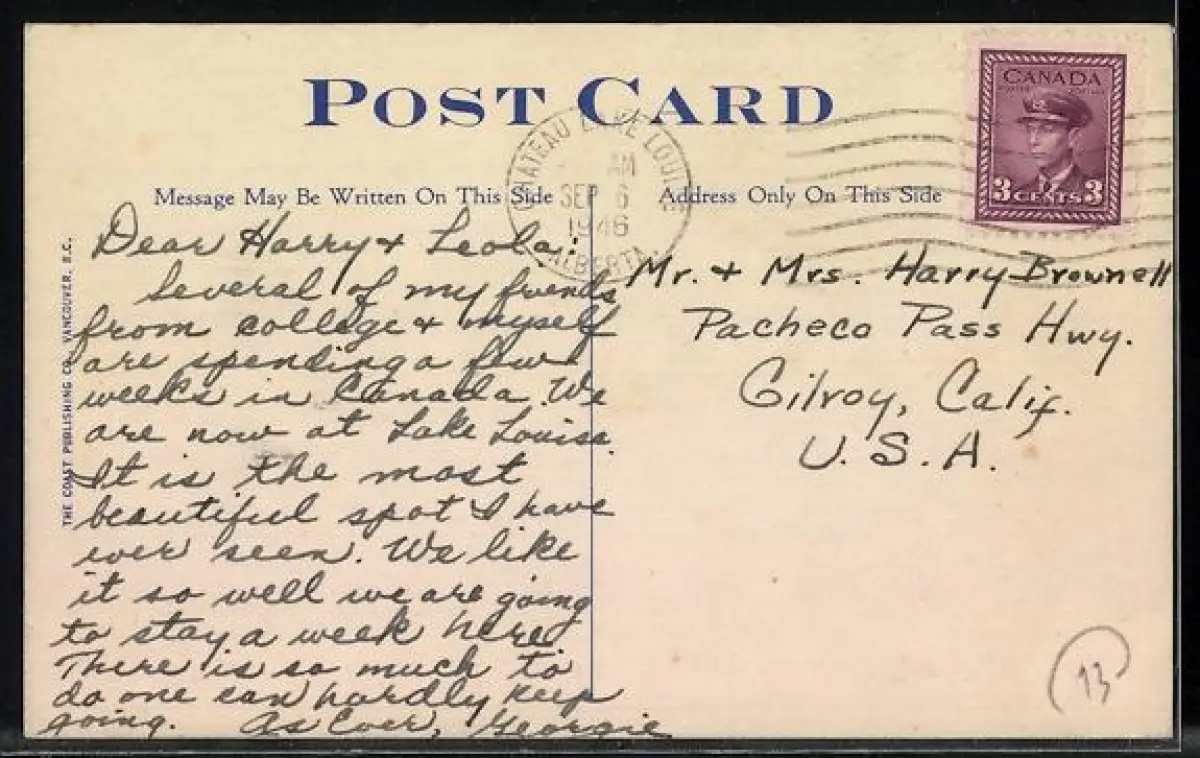 POST CARD
CHATEAU LAKE LOUISE
AM
SEP 6
1946
ALBERTA
CANADA
3 CENTS 3
Message May Be Written On This Side
Address Only On This Side
THE COAST PUBLISHING CO. VANCOUVER, B.C.
Dear Harry + Leola:
Several of my friends
from college + myself
are spending a few
weeks in Canada. We
are now at Lake Louise.
It is the most
beautiful spot I have
ever seen. We like
it so well we are going
to stay a week here
There is so much to
do one can hardly keep
going. As Ever, Georgie
Mr. + Mrs. Harry Brownell
Pacheco Pass Hwy.
Gilroy, Calif.
U.S.A.
13